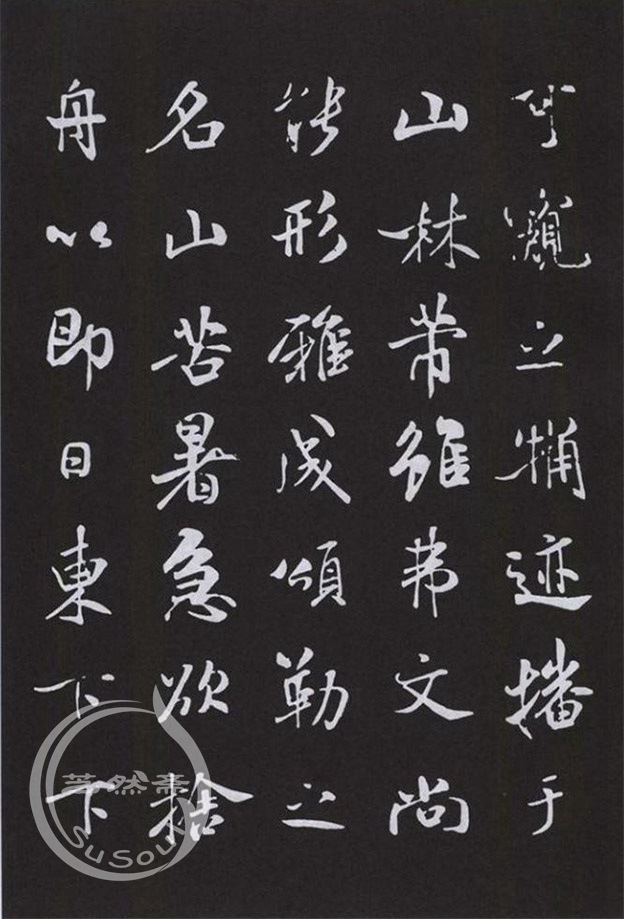 窺之迹播于
山林芾雖弗文尚
能形雅成頌勒之
名山苦暑急欲捨
舟以即日東下下
然斋
SuSou